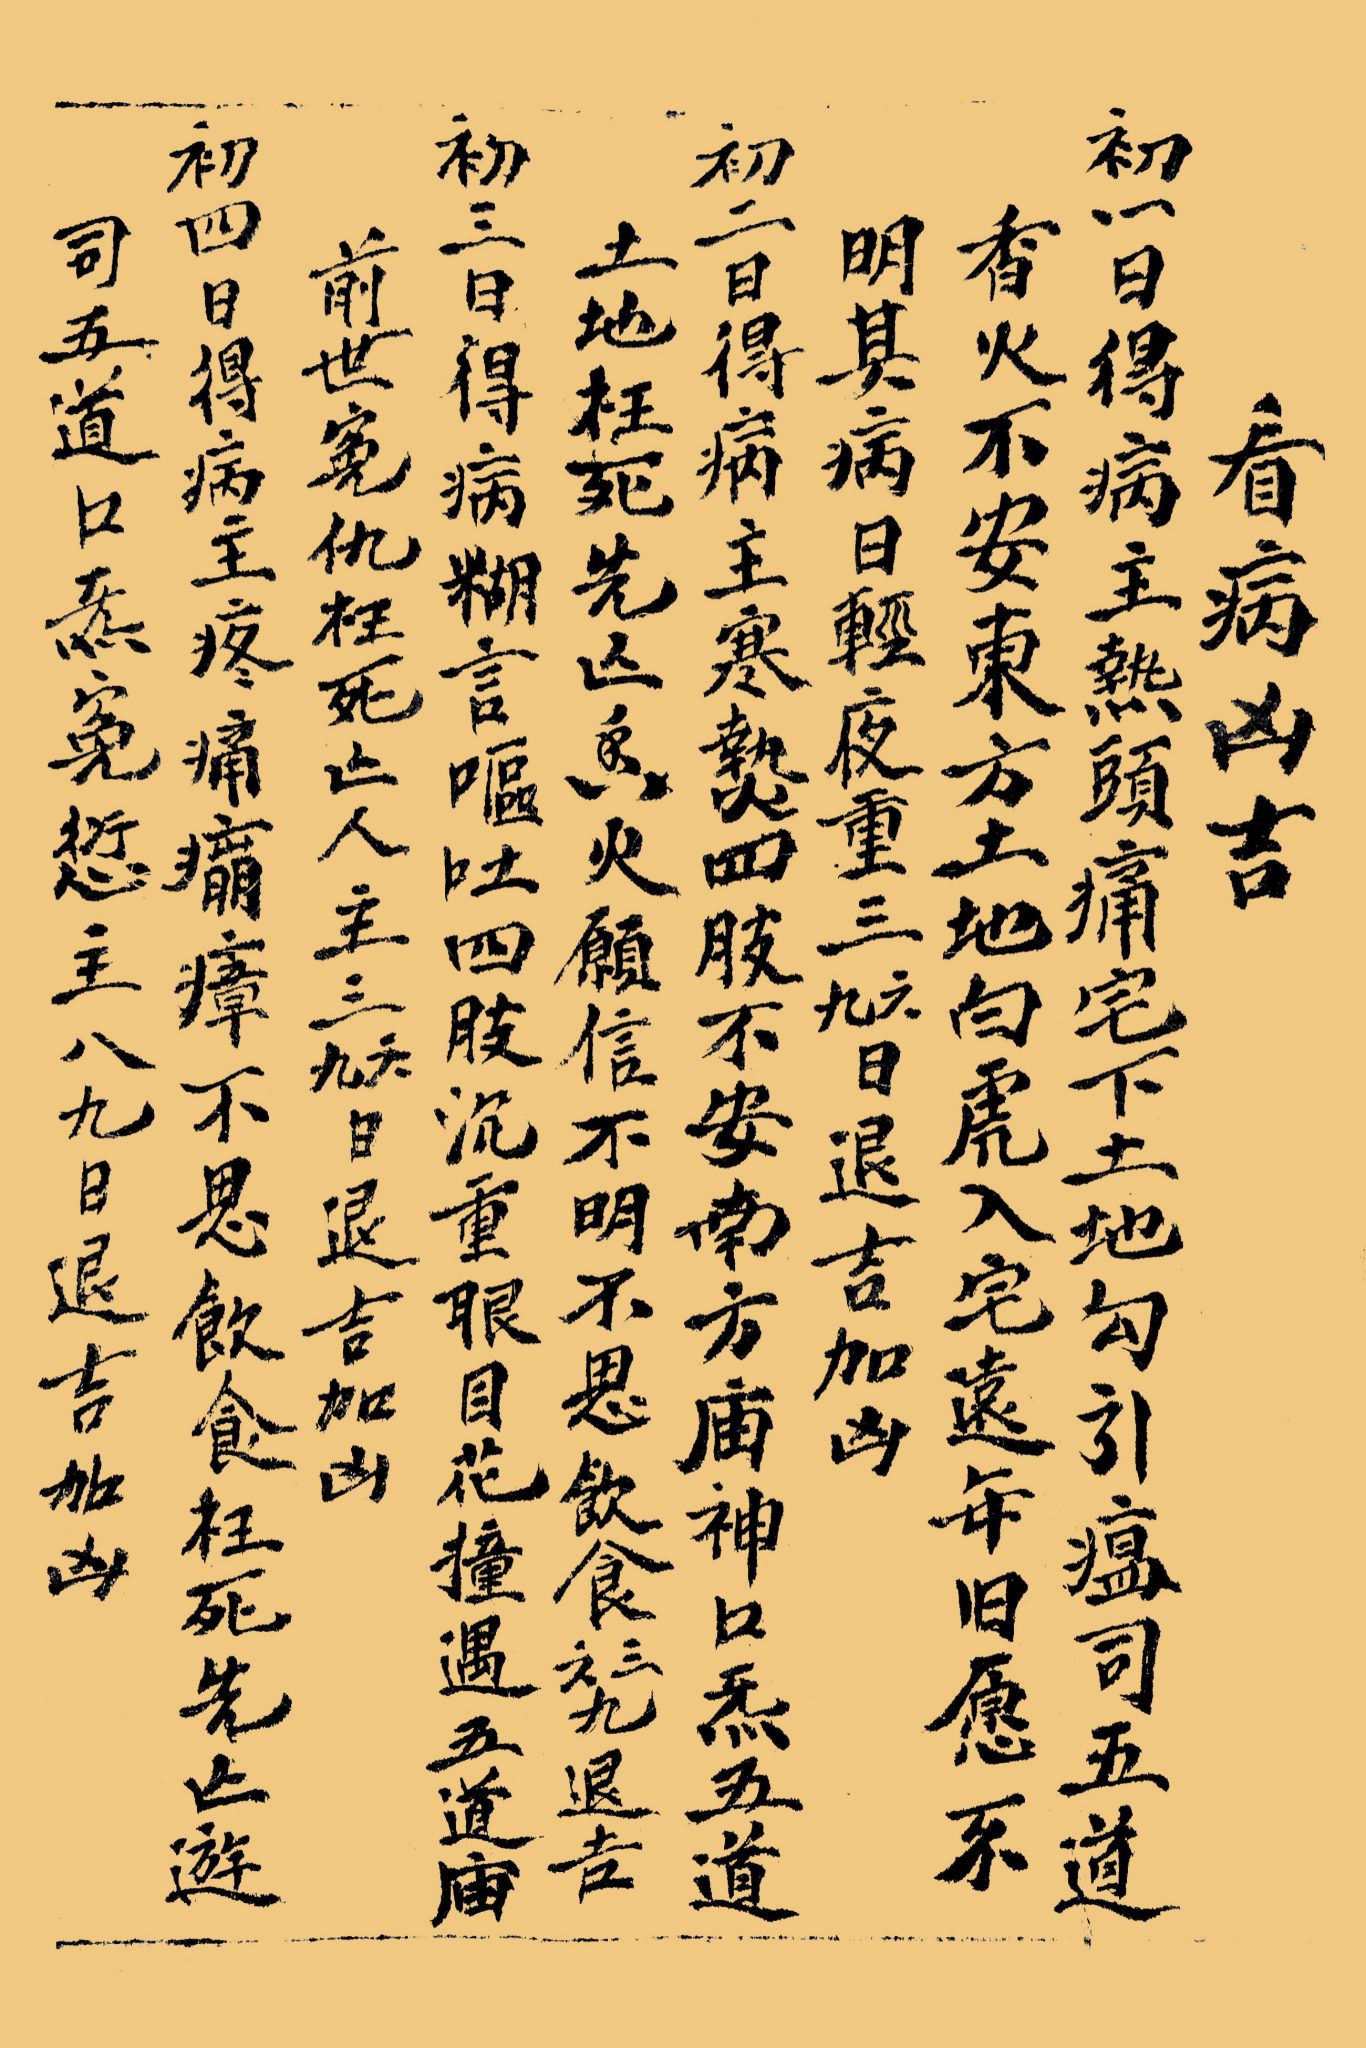 看病凶吉
初一日得病主熱頭痛宅下土地勾引瘟司五道
香火不安東方土地白虎入宅遠年旧愿不
明其病日輕夜重三六九日退吉加凶
初二日得病主寒熱四肢不安南方庙神口炁五道
土地枉死先亡香火願信不明不思飲食三六九退吉
初三日得病糊言嘔吐四肢沉重眼目花撞遇五道庙
前世冤仇枉死亡人主三六九日退吉加凶
初四日得病主疼痛癟瘴不思飲食枉死先亡遊
司五道口炁冤愆主八九日退吉加凶